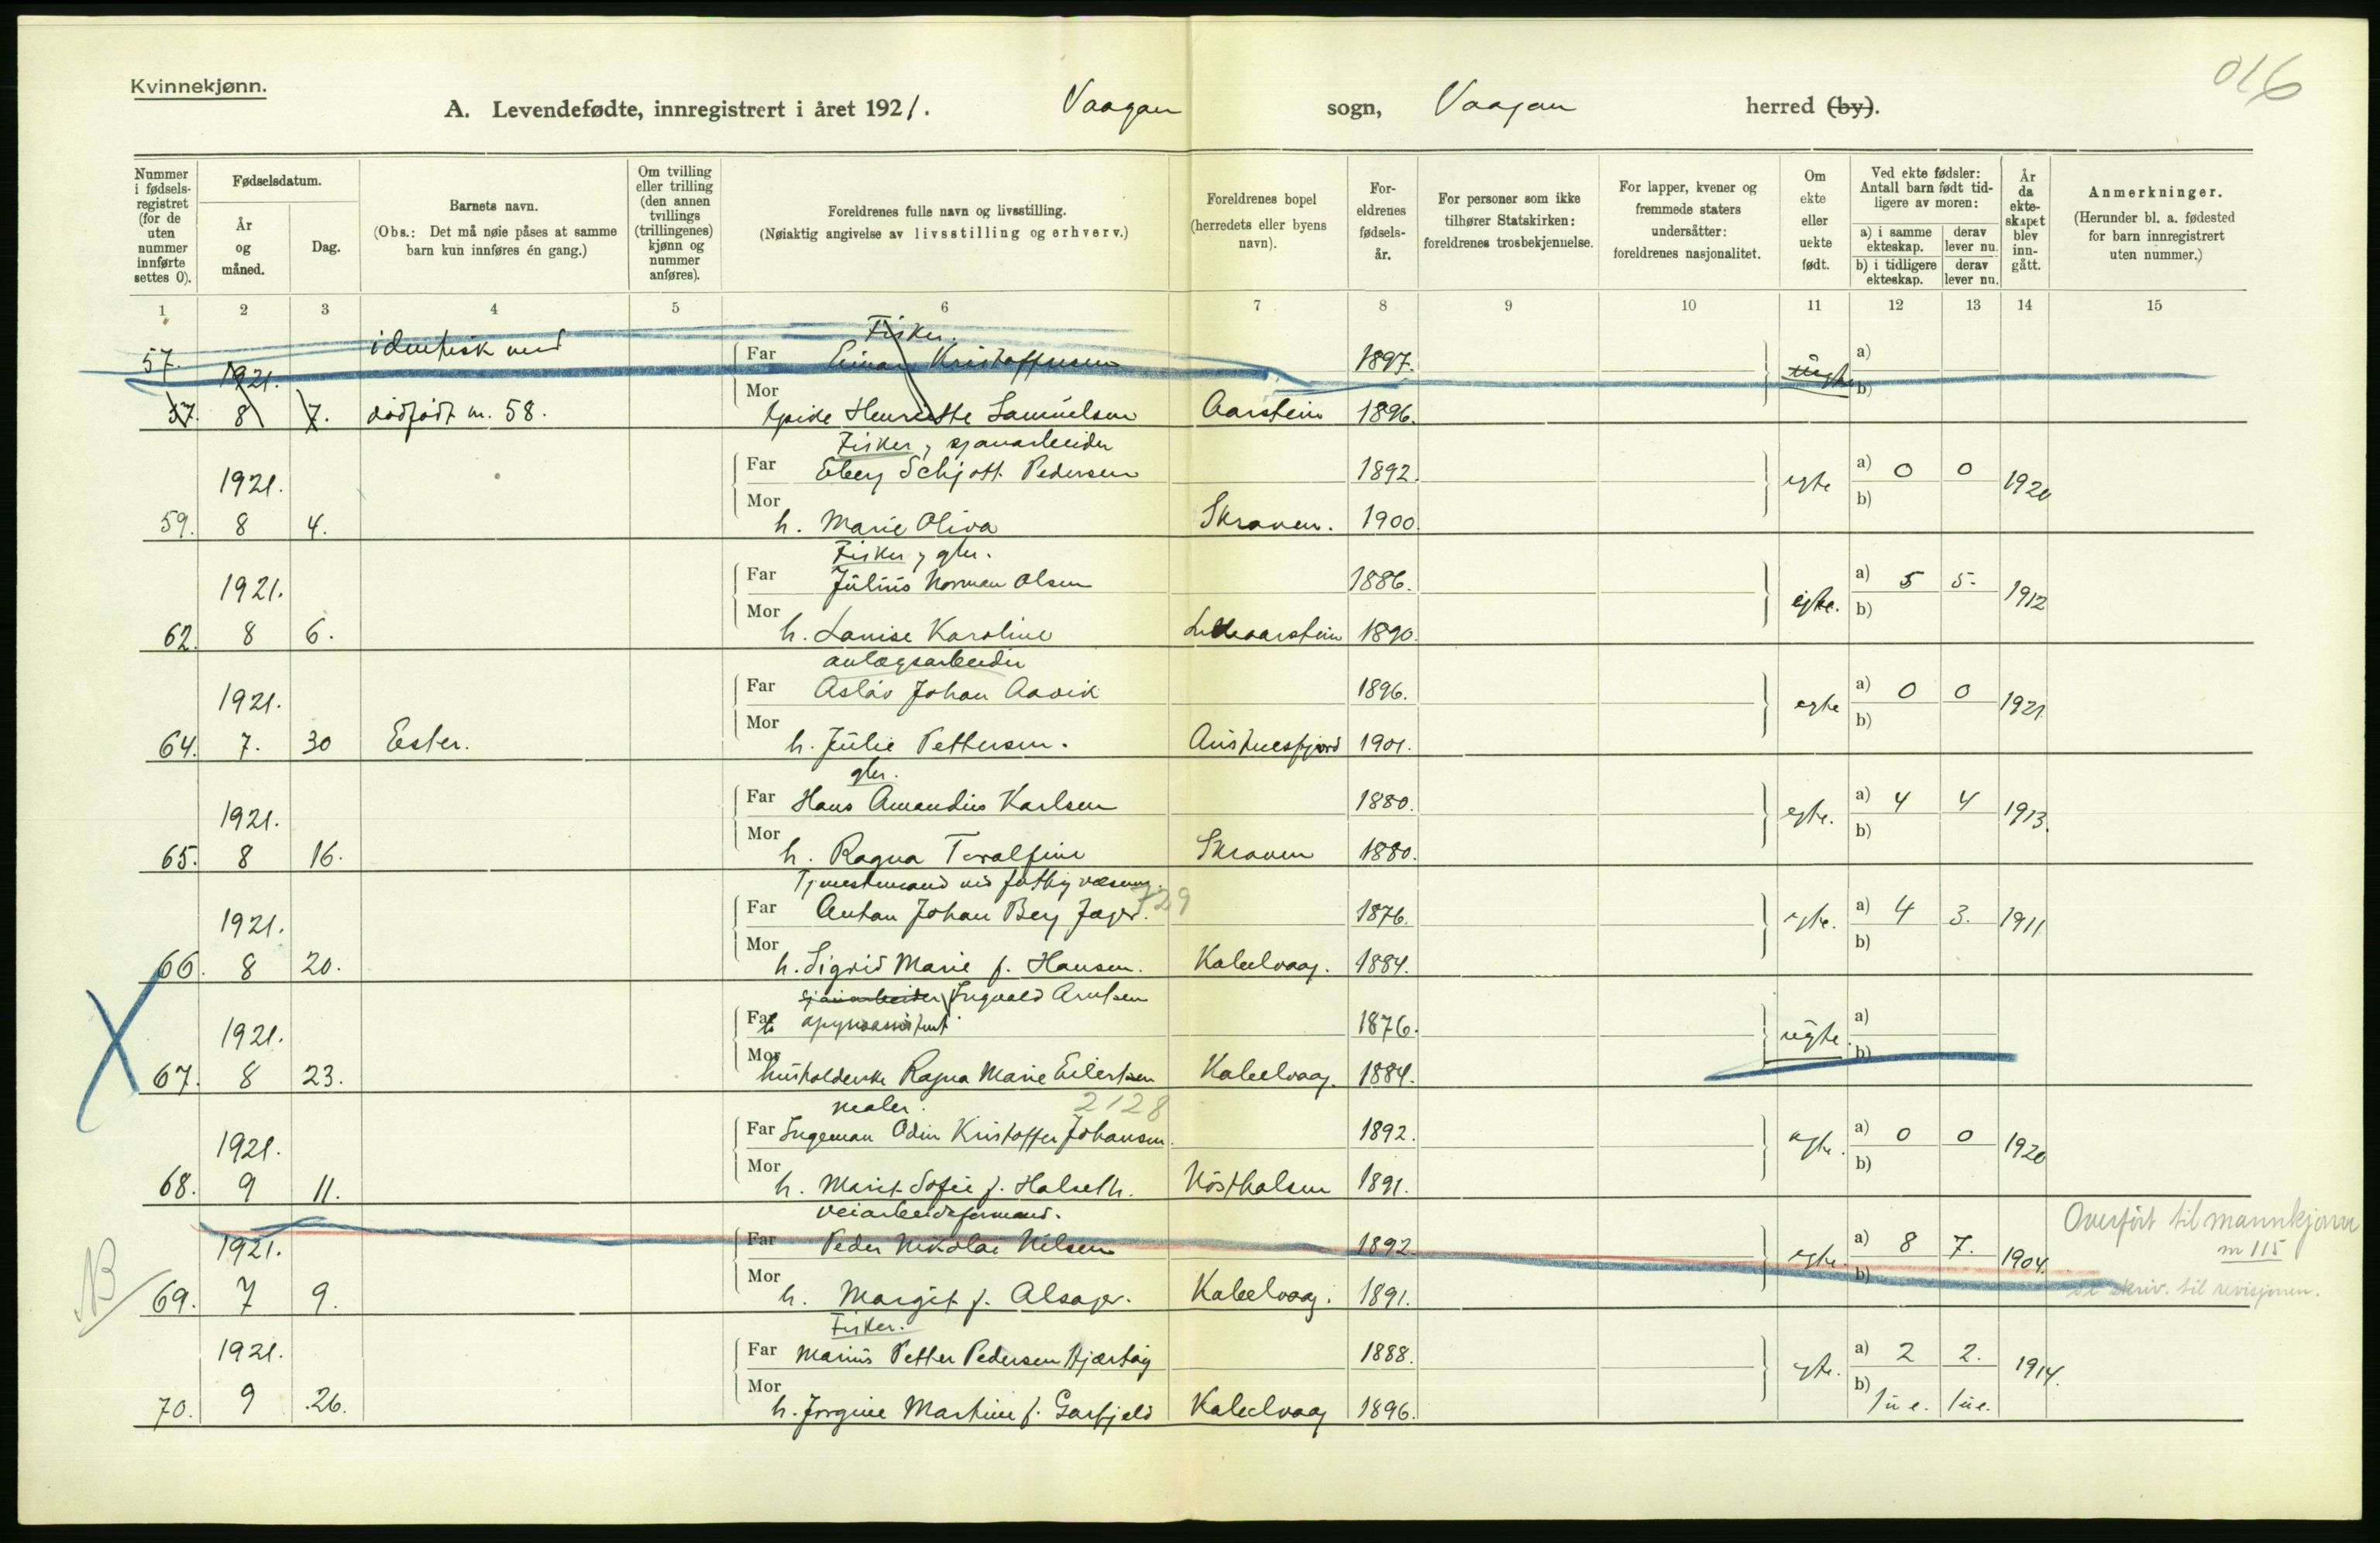 Kvinnekjønn.
016
A. Levendefødte, innregistrert i året 1921. Vaagan sogn, Vaagan herred (by).
Nummer i fødselsregistret (for de uten nummer innførte settes 0).
Fødselsdatum.
År og måned.
Dag.
Barnets navn.
(Obs.: Det må nøie påses at samme barn kun innføres én gang.)
Om tvilling eller trilling (den annen tvillings (trillingenes) kjønn og nummer anføres).
Foreldrenes fulle navn og livsstilling.
(Nøiaktig angivelse av livsstilling og erhverv.)
Foreldrenes bopel (herredets eller byens navn).
Foreldrenes fødselsår.
For personer som ikke tilhører Statskirken: foreldrenes trosbekjennelse.
For lapper, kvener og fremmede staters undersåtter: foreldrenes nasjonalitet.
Om ekte eller uekte født.
Ved ekte fødsler: Antall barn født tidligere av moren:
a) i samme ekteskap.
derav lever nu.
b) i tidligere ekteskap.
derav lever nu.
År da ekteskapet blev inngått.
Anmerkninger.
(Herunder bl. a. fødested for barn innregistrert uten nummer.)
1 2 3 4 5 6 7 8 9 10 11 12 13 14 15
Fisker.
57. 1921. identisk med Far Einar Kristoffersen 1897. a)
37. 8 7. dødfødt nr. 58. Mor Henriette Samuelsen Aarstein 1896. b)
Fisker, sjauarbeider
1921. Far Eberg Schjött Pedersen 1892. egte a) 0 0 1920
59. 8 4. Mor h. Marie Oliva Skraaven. 1900. b)
Fisker, gbr.
1921. Far Julius Norman Olsen 1886. egte. a) 5 5. 1912
62. 8 6. Mor h. Lovise Karoline Lilleaarstein 1890. b)
anlægsarbeider
1921. Far Aslav Johan Aavik 1896. egte a) 0 0 1921
64. 7. 30 Ester. Mor h. Julie Pettersen. Austnesfjord 1901. b)
gbr.
1921. Far Hans Amandius Karlsen 1880. egte. a) 4 4 1913.
65. 8 16. Mor h. Ragna Toralfine Skraaven 1880. b)
Tjenestemand ved fattigvæsenet. 729
1921. Far Anton Johan Berg Jæger. 1876. egte. a) 4 3. 1911
66. 8 20. Mor h. Sigrid Marie f. Hansen. Kabelvaag. 1884. b)
sjauarbeider Ingvald Arntsen
1921. Far 1876. uegte. a)
67. 8 23. Mor husholderske Ragna Marie Eilertsen Kabelvaag. 1884. b)
maler. 2128
1921. Far Ingeman Odin Kristoffer Johansen. 1892. egte. a) 0 0 1920
68. 9 11. Mor h. Marit Sofie f. Halseth. Östholsen 1891. b)
veiarbeidsformand.
Overført til mannkjønn
nr 115
1921. Far Peder Nikolai Nilsen 1892 egte. a) 8 7. 1904.
NB 69. 7 9. Mor h. Margit f. Alsager. Kabelvaag. 1891. b)
skriv. til revisjonen.
Fisker.
1921. Far Marius Petter Pedersen Hjertøy 1888. egte. a) 2 2. 1914.
70. 9 26. Mor h. Jorgine Martine f. Garfjeld Kabelvaag 1896. b) 1 u e. 1 u e.